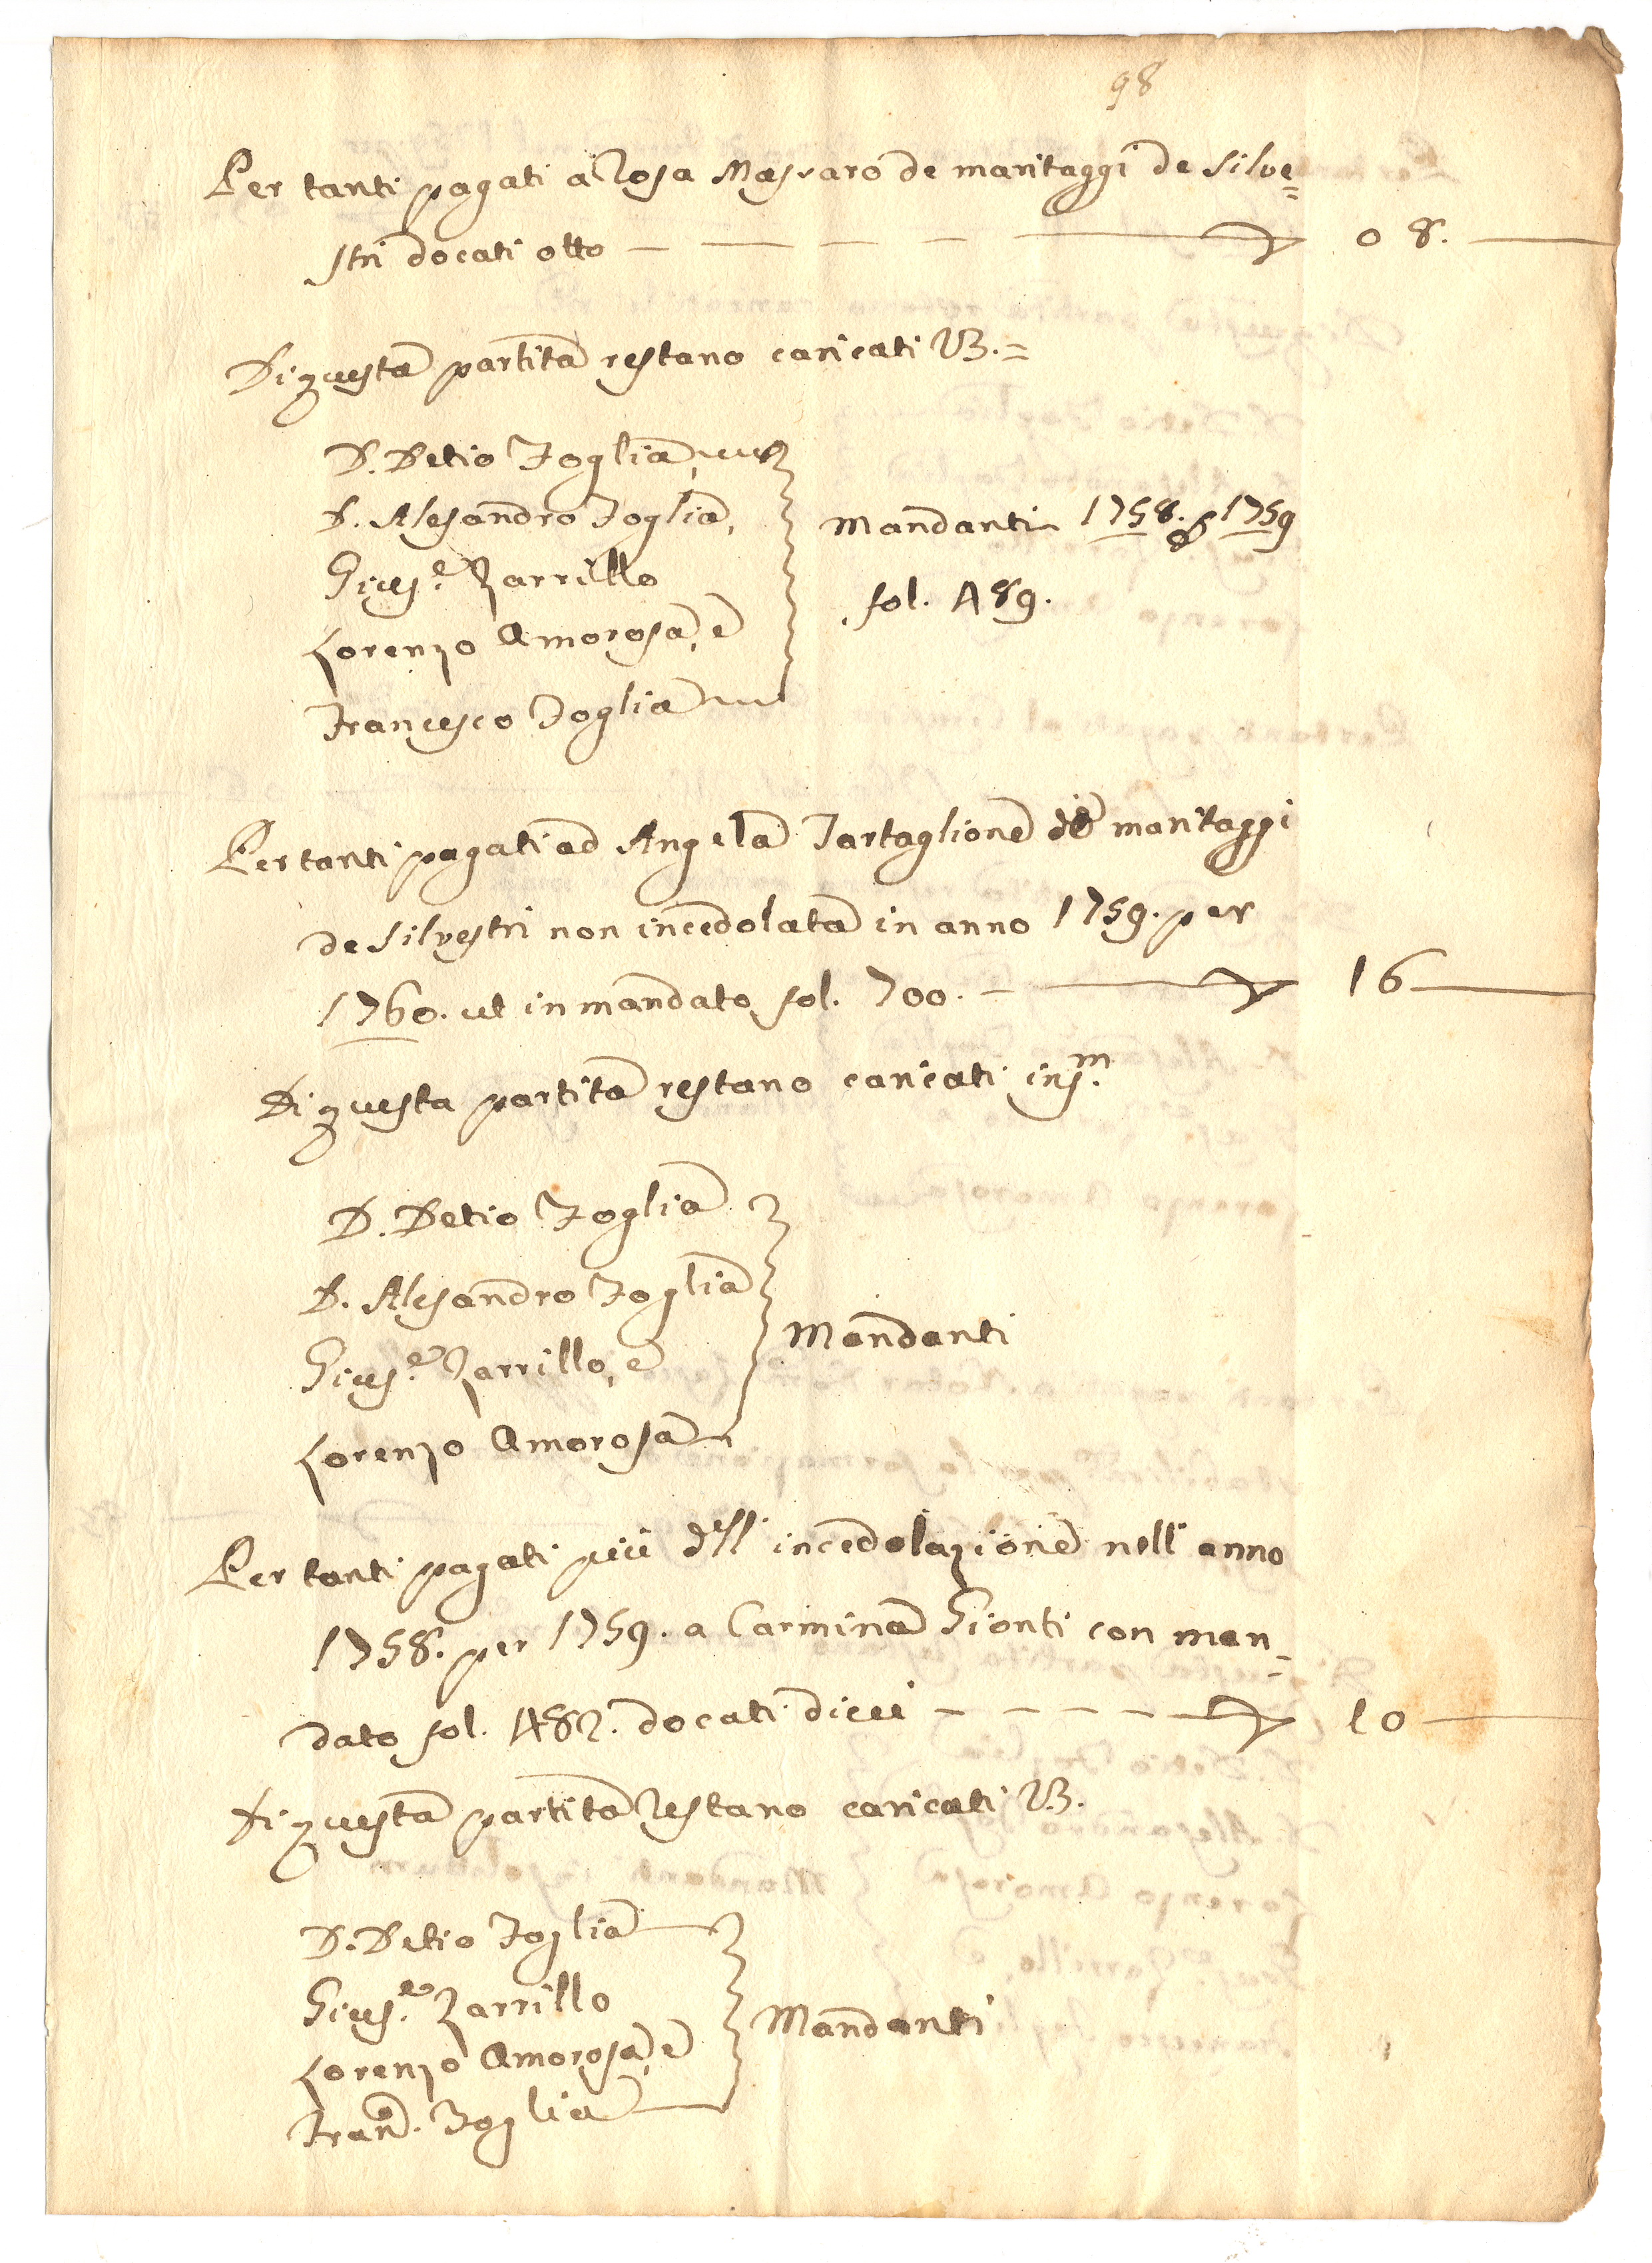 98
Per tanti pagati a Rosa Massaro de maritaggi de Silve=
stri docati otto — — — — 08.
Di questa partita restano caricati =
D. Detio Foglia,
D. Alesandro Foglia,
Gius.e Zarrillo
Lorenzo Amorosa, e
Francesco Foglia
Mandanti 1758. p 1759
fol. 489.
Per tanti pagati ad Angela Tartaglione de maritaggi
de Silvestri non incedolata in anno 1759. per
1760. ut in mandato fol. 700. — 16
Di questa partita restano caricati ins.m
D. Detio Foglia
D. Alesandro Foglia
Gius.e Zarrillo, e
Lorenzo Amorosa
Mandanti
Per tanti pagati più dell' incedolazione nell' anno
1758. per 1759. a Carmina Gionti con man=
dato fol. 482. docati dieci — — — — 10
Di questa partita restano caricati
D. Detio Foglia
Gius.e Zarrillo
Lorenzo Amorosa, e
Fran.co Foglia
Mandanti